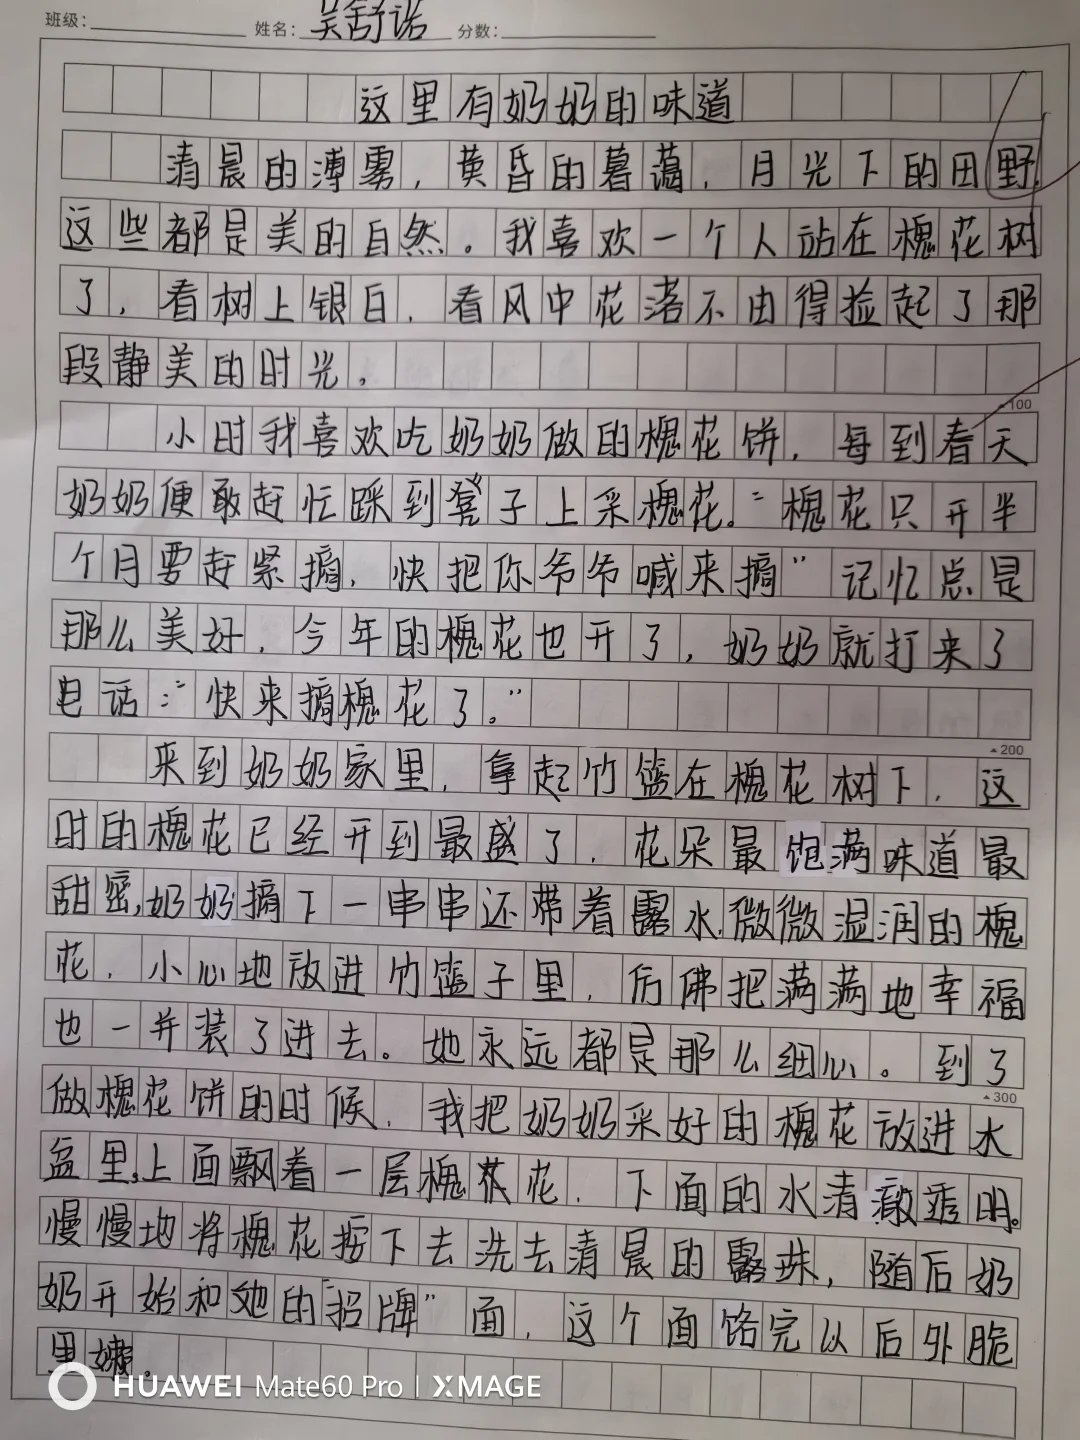 班级: 姓名: 吴舒诺 分数:
这里有奶奶的味道
清晨的薄雾,黄昏的暮蔼,月光下的田野,
这些都是美的自然。我喜欢一个人站在槐花树
了,看树上银白,看风中花落不由得捡起了那
段静美的时光,
100
小时我喜欢吃奶奶做的槐花饼,每到春天
奶奶便敢赶忙踩到凳子上采槐花。“槐花只开半
个月要赶紧摘,快把你爷爷喊来摘”记忆总是
那么美好,今年的槐花也开了,奶奶就打来了
电话:“快来摘槐花了。”
200
来到奶奶家里,拿起竹篮在槐花树下,这
时的槐花已经开到最盛了,花朵最饱满味道最
甜密,奶奶摘下一串串还带着露水,微微湿润的槐
花,小心地放进竹篮子里,仿佛把满满地幸福
也一并装了进去。她永远都是那么细心。到了
300
做槐花饼的时候,我把奶奶采好的槐花放进水
盆里,上面飘着一层槐花,下面的水清澈透明。
慢慢地将槐花按下去洗去清晨的露珠,随后奶
奶开始和她的“招牌”面,这个面饹完以后外脆
里嫩。
HUAWEI Mate60 Pro | XMAGE